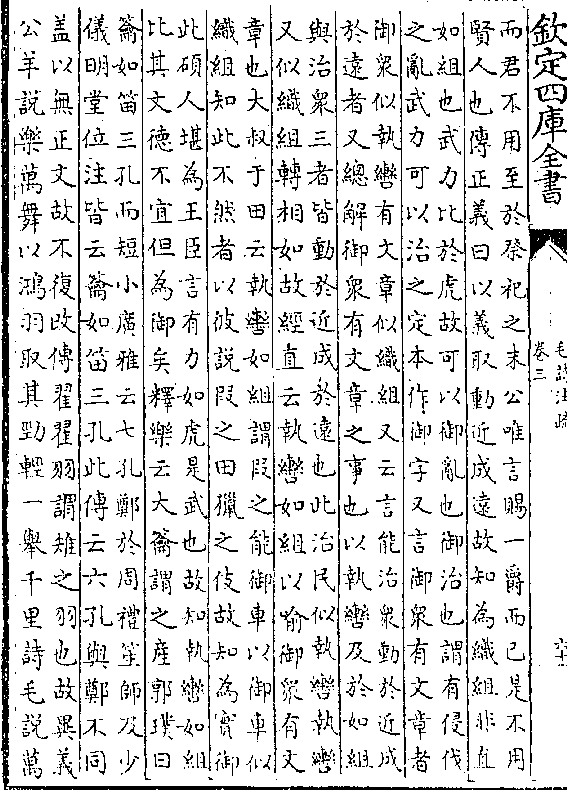 欽定四庫全書
毛詩注疏
卷三
而君不用至於祭祀之末公唯言賜一爵而已是不用
賢人也傳正義曰以義取動近成遠故知為織組非直
如組也武力比於虎故可以御亂也御治也謂有侵伐
之亂武力可以治之定本作御字又言御衆有文章者
御衆似執轡有文章似織組又云言能治衆動於近成
於遠者又總解御衆有文章之事也以執轡及於如組
與治衆三者皆動於近成於遠也此治民似執轡執轡
又似織組轉相如故經直云執轡如組以喻御衆有文
章也大叔于田云執轡如組謂叚之能御車以御車似
織組知此不然者以彼説叚之田獵之伎故知為實御
此碩人堪為王臣言有力如虎是武也故知執轡如組
比其文德不宜但為御矣釋樂云大籥謂之産郭璞曰
籥如笛三孔而短小廣雅云七孔鄭於周禮笙師及少
儀明堂位注皆云籥如笛三孔此傳云六孔與鄭不同
盖以無正文故不復改傳翟翟羽謂雉之羽也故異義
公羊説樂萬舞以鴻羽取其勁輕一舉千里詩毛説萬